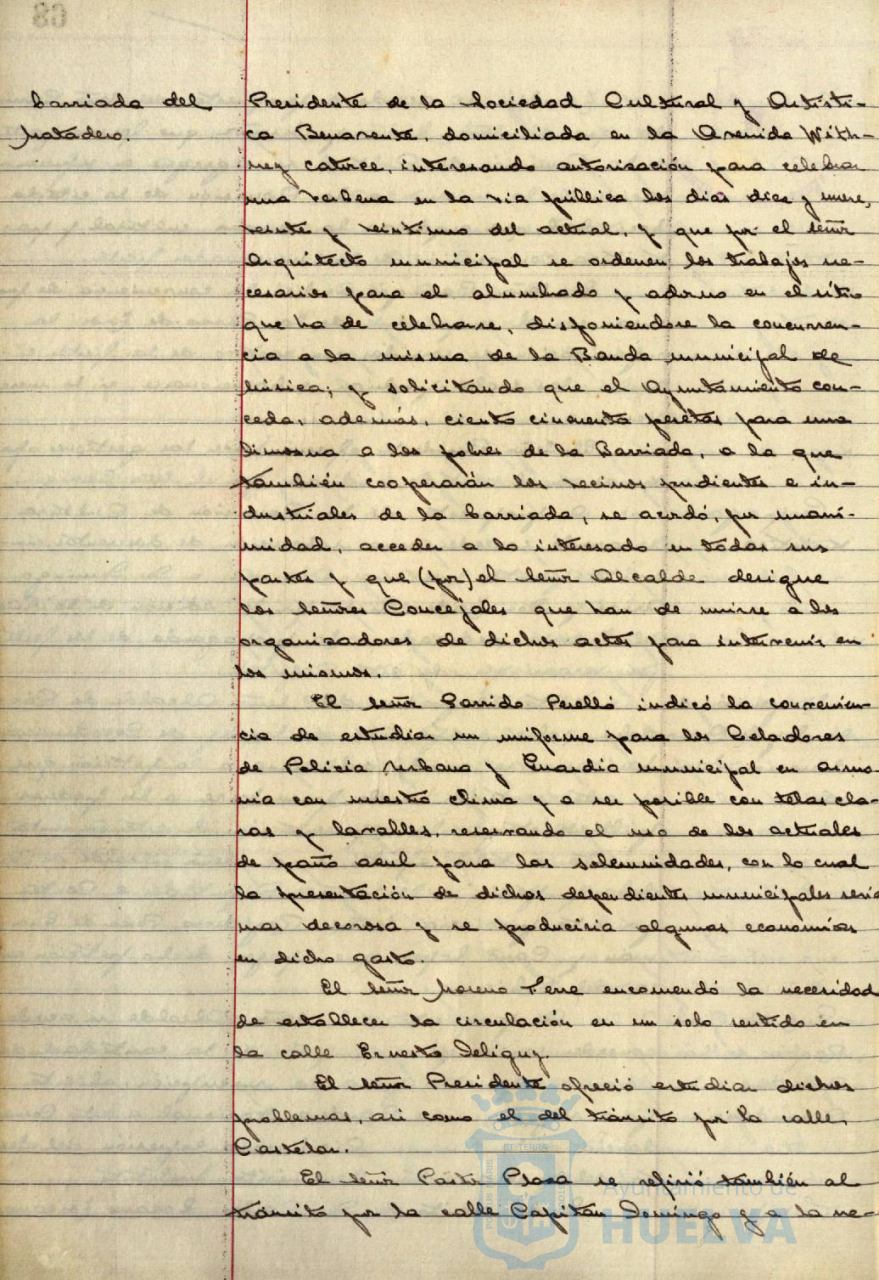 barriada del
Matadero.
Presidente de la Sociedad Cultural y Artísti-
ca Benavente, domiciliada en la Avenida With-
ney catorce, interesando autorisación para celebrar
una verbena en la via pública los dias diez y nueve,
veinte y veintiuno del actual, y que por el señor
Arquitecto municipal se ordenen los trabajos ne-
cesarios para el alumbrado y adorno en el sitio
que ha de celebrarse, disponiendose la concurren-
cia a la misma de la Banda municipal de
música; y solicitando que el Ayuntamiento con-
ceda, además, ciento cincuenta pesetas para una
limosna a los pobres de la Barriada, a la que
también cooperarán los vecinos pudientes e in-
dustriales de la barriada, se acordó, por unani-
midad, acceder a lo interesado en todas sus
partes y que (por) el señor Alcalde designe
los señores Concejales que han de unirse a los
organisadores de dichos actos para intervenir en
los mismos.
El señor Garrido Perelló indicó la convenien-
cia de estudiar un uniforme para los Celadores
de Policía Urbana y Guardia municipal en armo-
nia con nuestro clima y a ser posible con telas cla-
ras y lavables, reservando el uso de los actuales
de paño asul para las solemnidades, con lo cual
la presentación de dichos dependientes municipales seria
mas decorosa y se produciria algunas economías
en dicho gasto.
El señor Moreno Terre encomendó la necesidad
de establecer la circulación en un solo sentido en
la calle Ernesto Deligny.
El señor Presidente ofreció estudiar dichos
problemas, asi como el del tránsito por la calle
Castelar.
El señor Pastr Plasa se refirió también al
tránsito por la calle Capitán Domingo y a la ne-
Ayuntamiento de
HUELVA